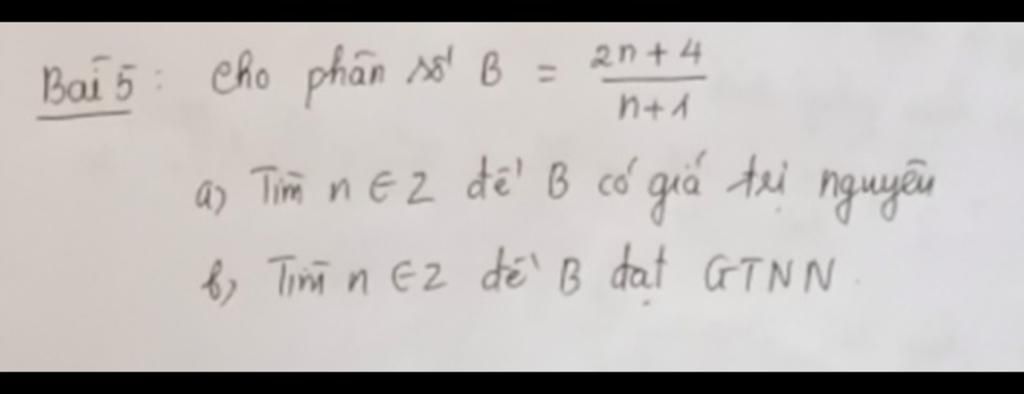 Bài 5: Cho phân số B = \frac{2n+4}{n+1}
a) Tìm n ∈ Z để B có giá trị nguyên
b) Tìm n ∈ Z để B đạt GTNN.